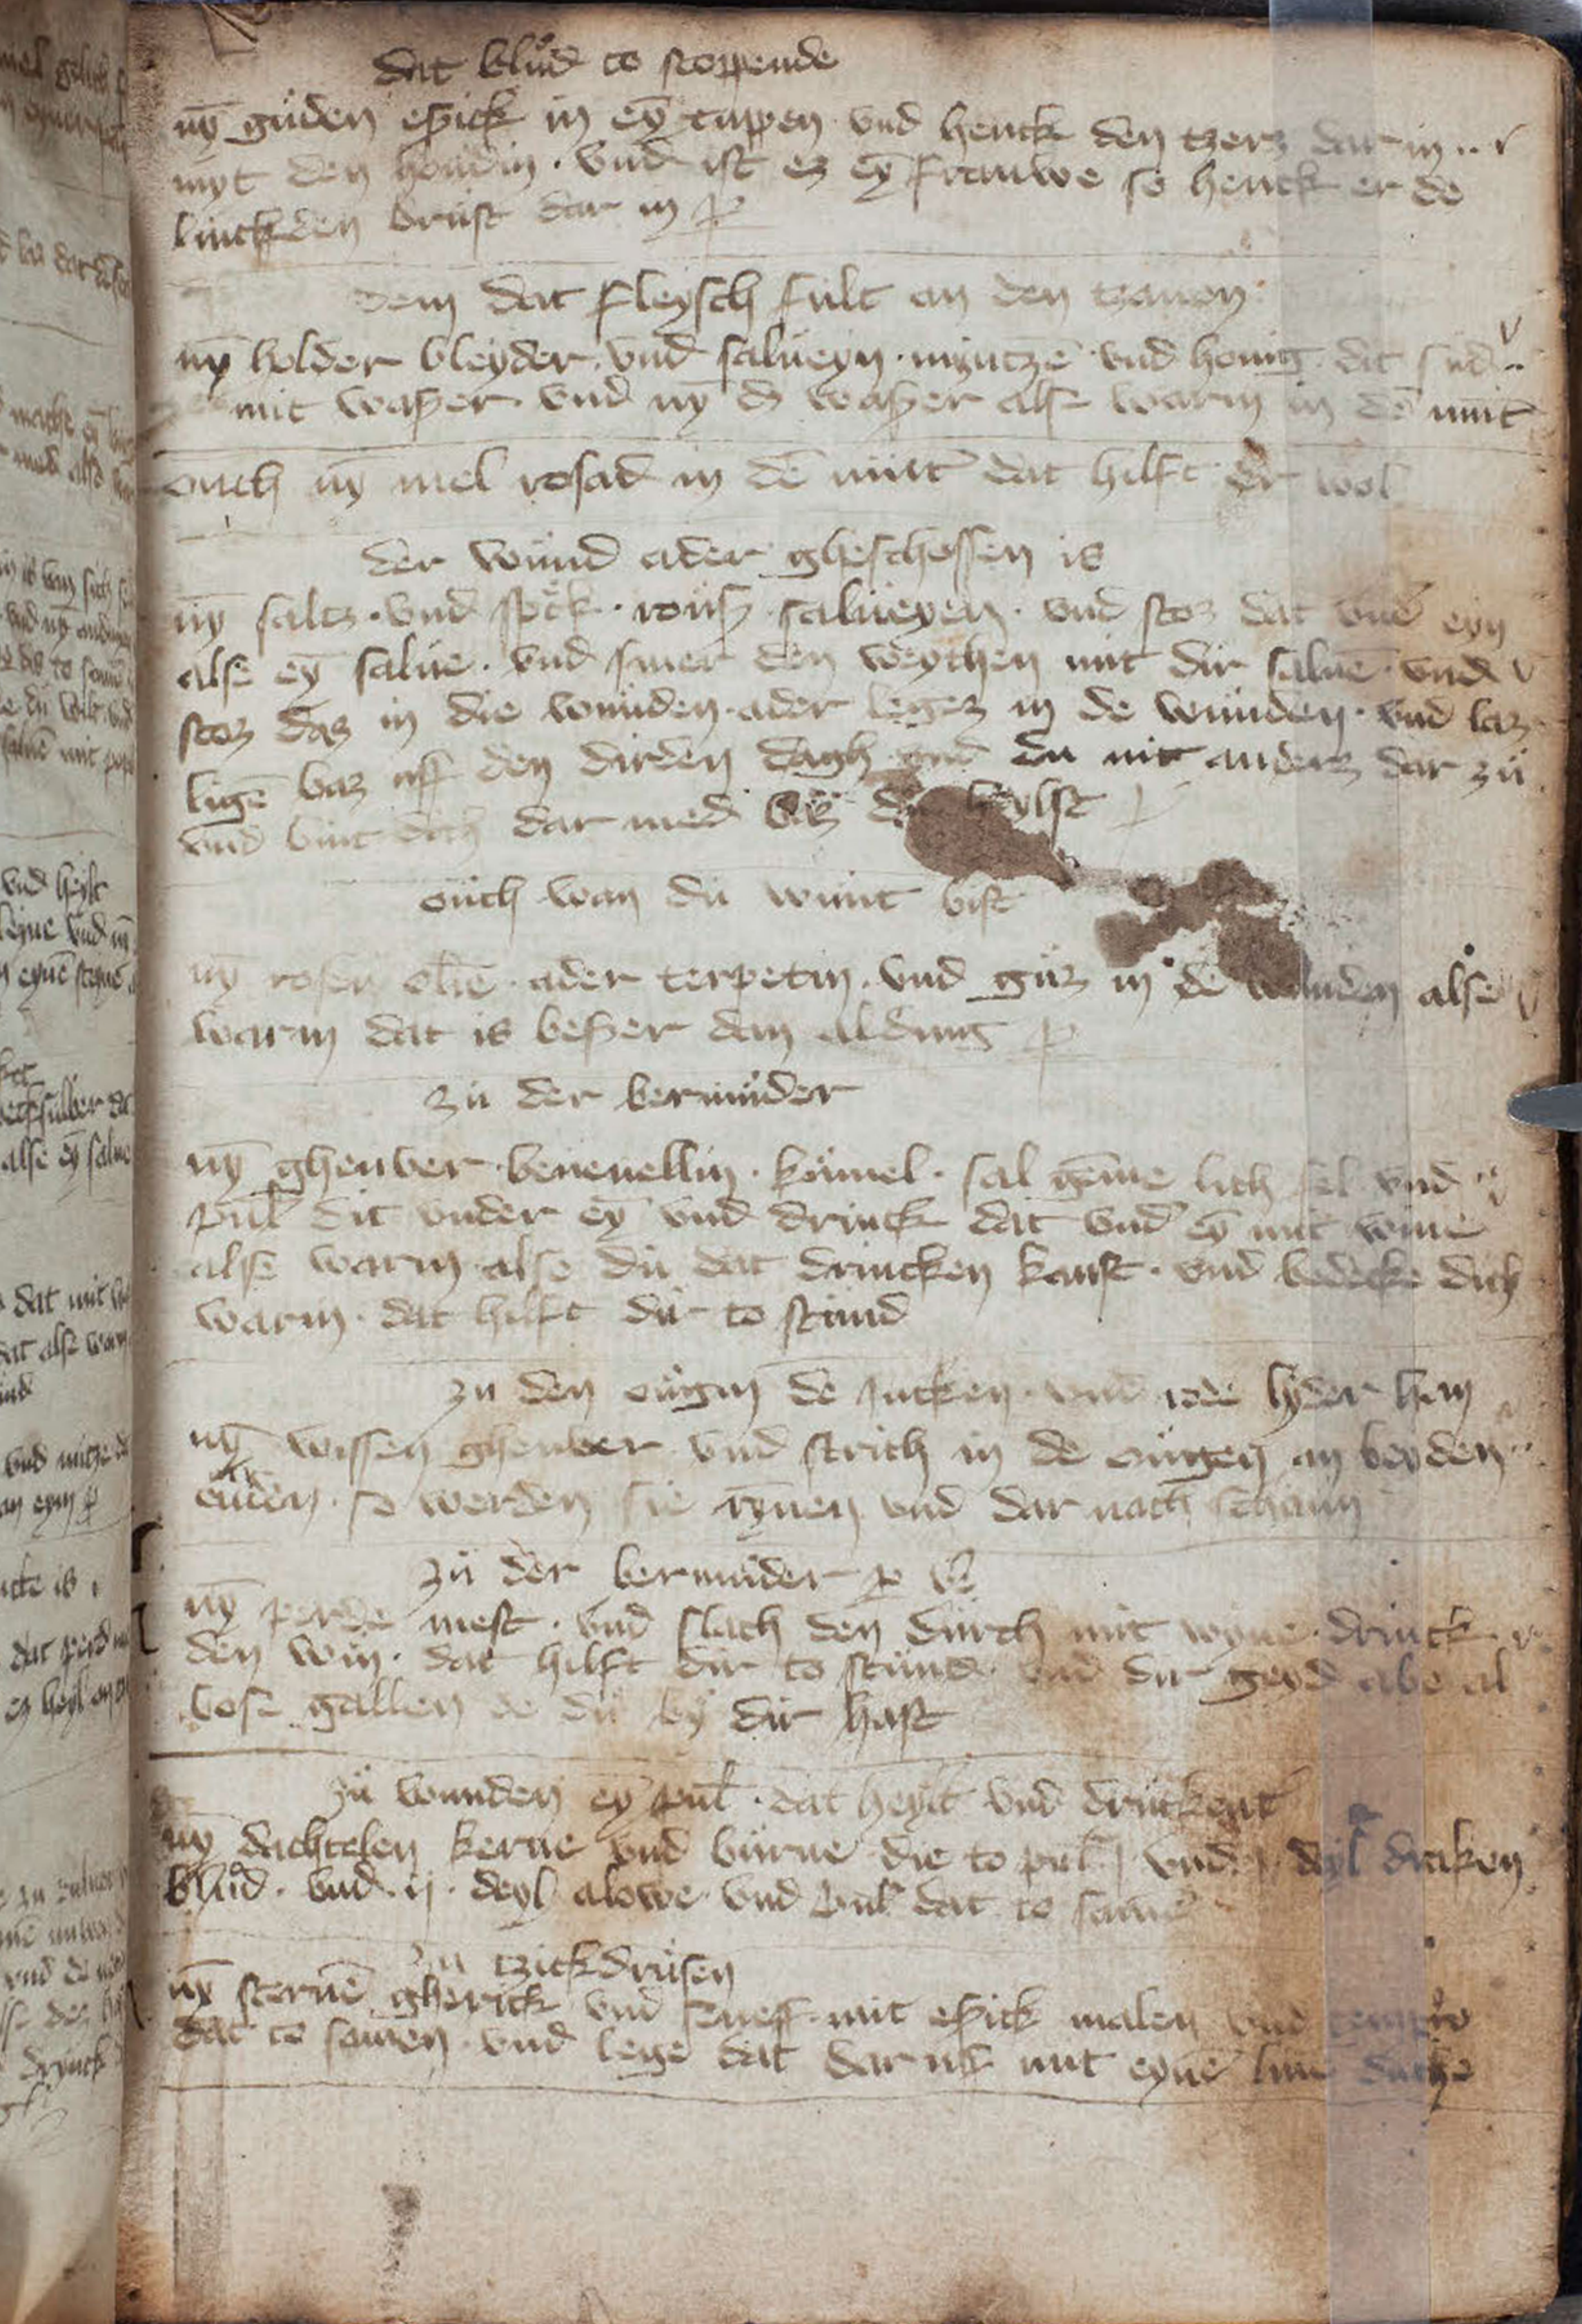 dat blůd to stoppende
nȳ gůden eßick in eȳ tuppen vnd henck den tzers dar in
myt den houdin · vnd ist es eȳ frauwe so henck er de
lincken brůst dar in
dem dat fleysch fult an den tzanen
nȳ holder bleyder vnd salueyn · myntzē vnd honig dit sud
mit waßer vnd nȳ dz waßer alse warm in dē mūt
ouch nȳ mel rosad in dē mūt dat hilft dir wol
der wund ader gheschossen is
nȳ saltz · vnd spek · rouß salueyen · vnd stoz dat vnder eyn
alse eȳ salue · vnd smer den weychen mit dir saluē vnd
stoz daz in die wunden ader legez in de wunden · vnd laz
ligē baz uff den dirden dagh vnd du nit anders dar zů
vnd bint dich dar med biz du heylst
ouch wan du wunt bist
nȳ rosen olie ader terpetin · vnd guz in de wunden alse
warm dat is beßer dan aldung
zu der bermůder
nȳ ghenber beuenellin · kömel · sal gēme lich fel vnd
pul dit vnder eȳ vnd drinck dat vnd eȳ mit wine
alse warm alse du dat drincken kanst · vnd bedecke dich
warm · dat hilft dir to stund
zu den ougin de jucken vnd rode hyder han
nȳ wissen ghenber vnd strich in de ougen an beyden
enden · so werden sie rynen vnd dar nach schann
zů der bermůder
nȳ perde mest · vnd slach den durch mit wyne · drinck
den win · dat hilft dir to stund vnd dir geyd abe al
bose gallen de du by dir hast
zů wunden eȳ pul · dat heylt vnd druckent
nȳ dachtelen kerne vnd burne die to pul vnd j deyl draken
blůd · vnd · ij · deyl alowe vnd pul dat to samē
zu tzickdrusen
nȳ sternē gherick vnd seneff mit eßick malen vnd tempir
dat to samen · vnd lege dat dar uf mit eynē line duche